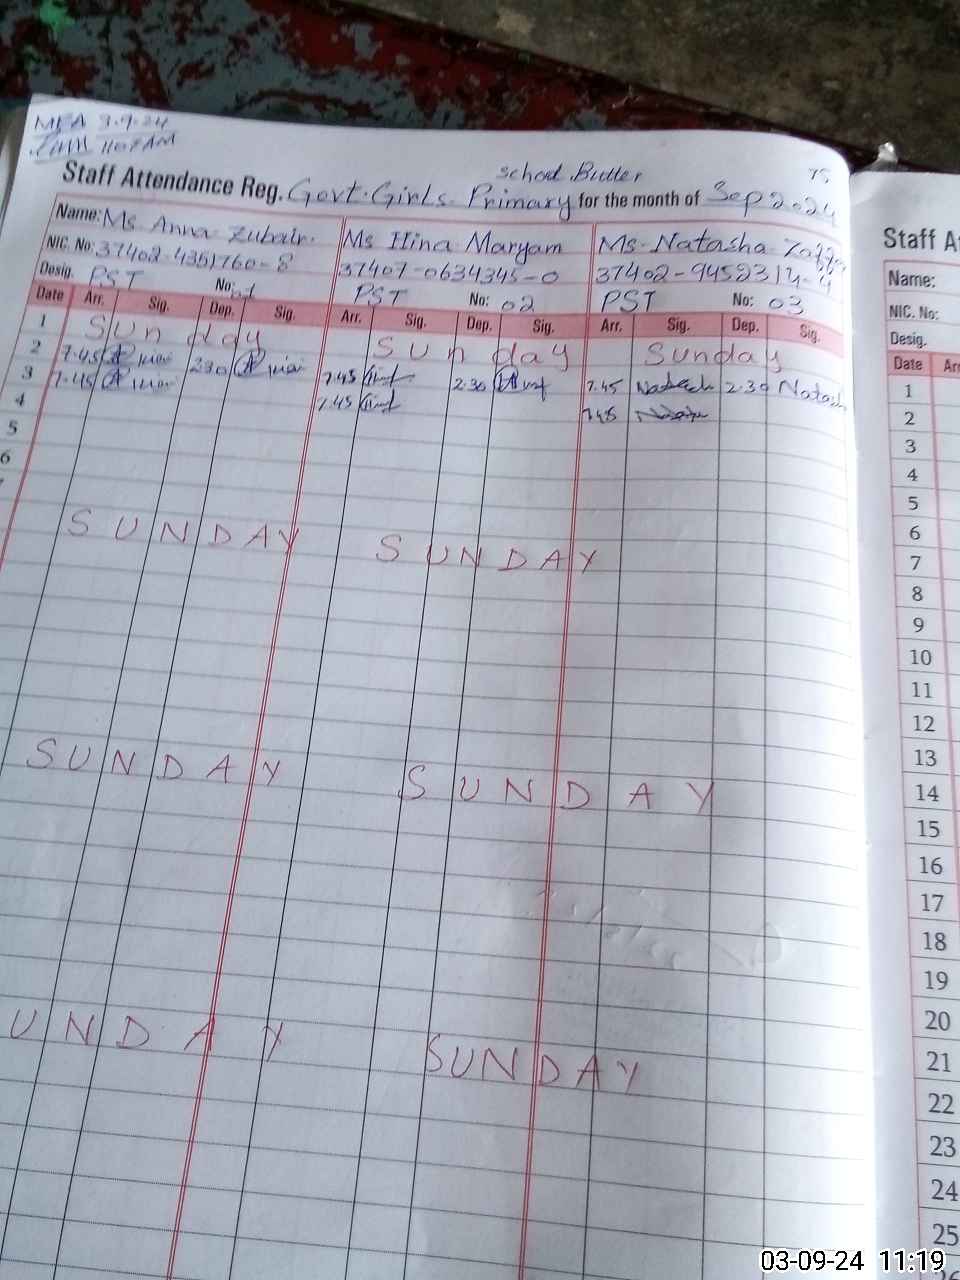 MEA 3.9.24
1107 AM
School Butler 75
Staff Attendance Reg. Govt. Girls Primary for the month of Sep 2024
Name: Ms. Anna Zubair. Ms Hina Maryam Ms. Natasha
NIC. No: 37402-4351760-8 37407-0634345-0 37402-9452314-4
Desig. PST No: PST No: 02 PST No: 03
Date Arr. Sig. Dep. Sig. Arr. Sig. Dep. Sig. Arr. Sig. Dep. Sig.
1 Sunday Sunday Sunday
2 7.45 230 7.45 2.30 7.45 Natash 2.30 Natash
3 7.45 7.45 7.45
4
5
6
SUNDAY SUNDAY
SUNDAY SUNDAY
UNDAY SUNDAY
Staff A
Name:
NIC. No:
Desig.
Date Ar
1
2
3
4
5
6
7
8
9
10
11
12
13
14
15
16
17
18
19
20
21
22
23
24
25
26
03-09-24 11:19